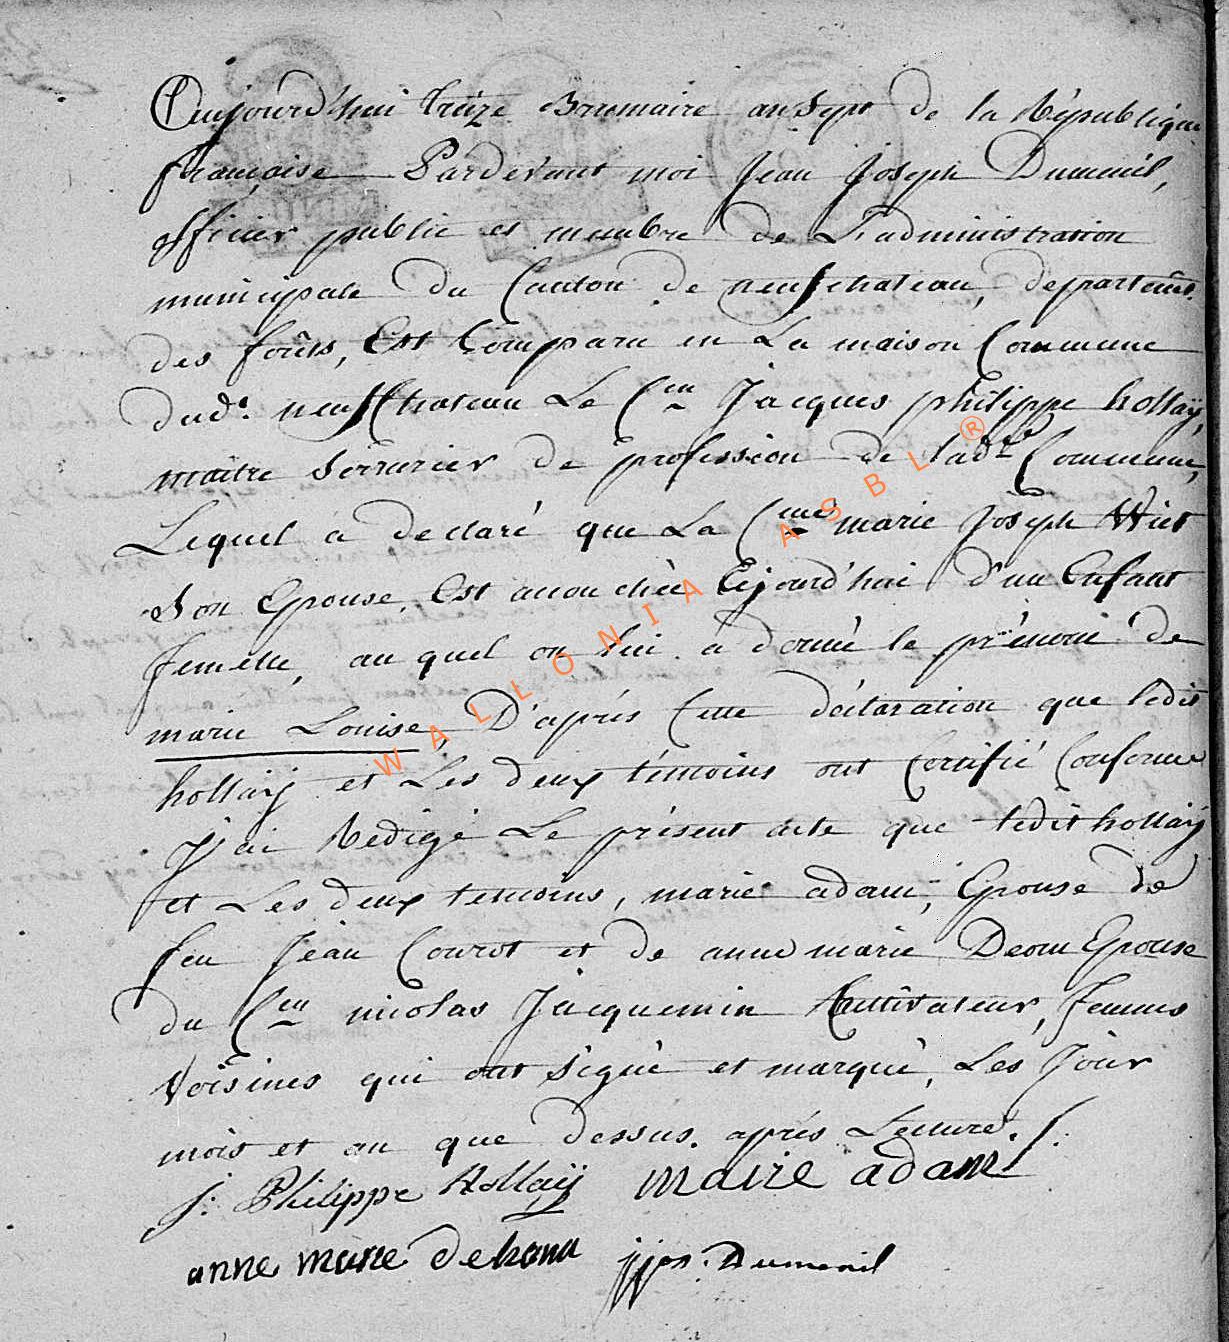 Aujourd'hui treize Brumaire an Sept de la République
française Pardevant moi Jean Joseph Dumenil,
officier public et membre de L'administration
municipale du Canton de neufchateau, departemt.
des forêts, Est Comparu en La maison Commune
dudt. neufchateau Le Cen Jacques philippe hollaÿ,
maitre Serrurier de profession de ladte. Commune,
Lequel a declaré que La Cenne marie Joseph Wiet
Son Epouse, Est accouchée ajourd'hui d'un Enfant
femelle, auquel on lui a donné le prénom de
marie Louise, D'après Cette déclaration que ledit
hollaÿ et Les deux témoins ont Certifié Conforme
J'ai Redigé Le présent acte que ledit hollaÿ
et Les deux temoins, marie adam, Epouse de
feu Jean Courot et de anne marie Deom Epouse
du Cen nicolas Jacquemin Cultivateur, femmes
Voisines qui ont signé et marqué, Les Jour
mois et an que dessus. après Lecture./.
j: Philippe Hollaÿ maire adam
anne marie jjph. Dumenil
WALLONIA ASBL ®